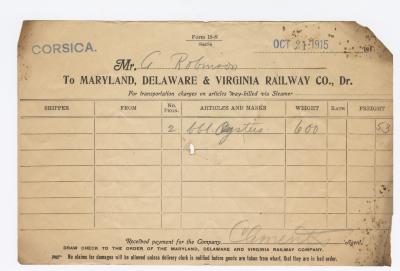 Form 19-S
CORSICA.
OCT 21 1915 191
Mr. A Robinson
To MARYLAND, DELAWARE & VIRGINIA RAILWAY CO., Dr.
For transportation charges on articles way-billed via Steamer
SHIPPER FROM No. PKGS. ARTICLES AND MARKS WEIGHT RATE FREIGHT
2 bbl Oysters 600 53
Received payment for the Company Agent.
DRAW CHECK TO THE ORDER OF THE MARYLAND, DELAWARE AND VIRGINIA RAILWAY COMPANY.
No claims for damages will be allowed unless delivery clerk is notified before goods are taken from wharf, that they are in bad order.